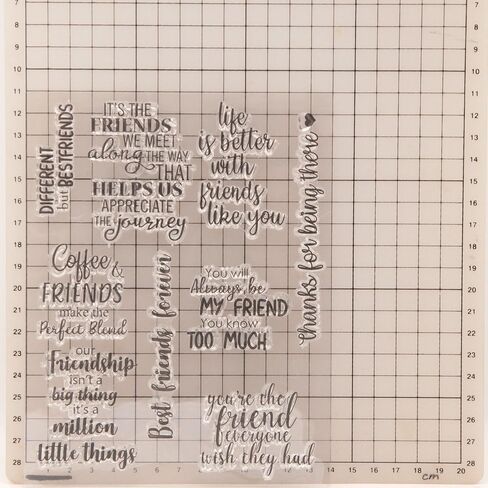 DIFFERENT
but BESTFRIENDS
IT'S THE
FRIENDS
WE MEET
along THE WAY
THAT
HELPS US
APPRECIATE
THE journey
life
is better
with
friends
like you
thanks for being there
Coffee &
FRIENDS
make the
Perfect Blend
Best friends forever
You will
Always be
MY FRIEND
You know
TOO MUCH
our
Friendship
isn't a
big thing
it's a
million
little things
you're the
friend
everyone
wish they had
7
8
9
10
11
12
13
14
15
16
17
18
19
20
21
22
23
24
25
26
27
28
7
8
9
10
11
12
13
14
15
16
17
18
19
20
21
22
23
24
25
26
27
28
1 2 3 4 5 6 7 8 9 10 11 12 13 14 15 16 17 18 19 20
CM